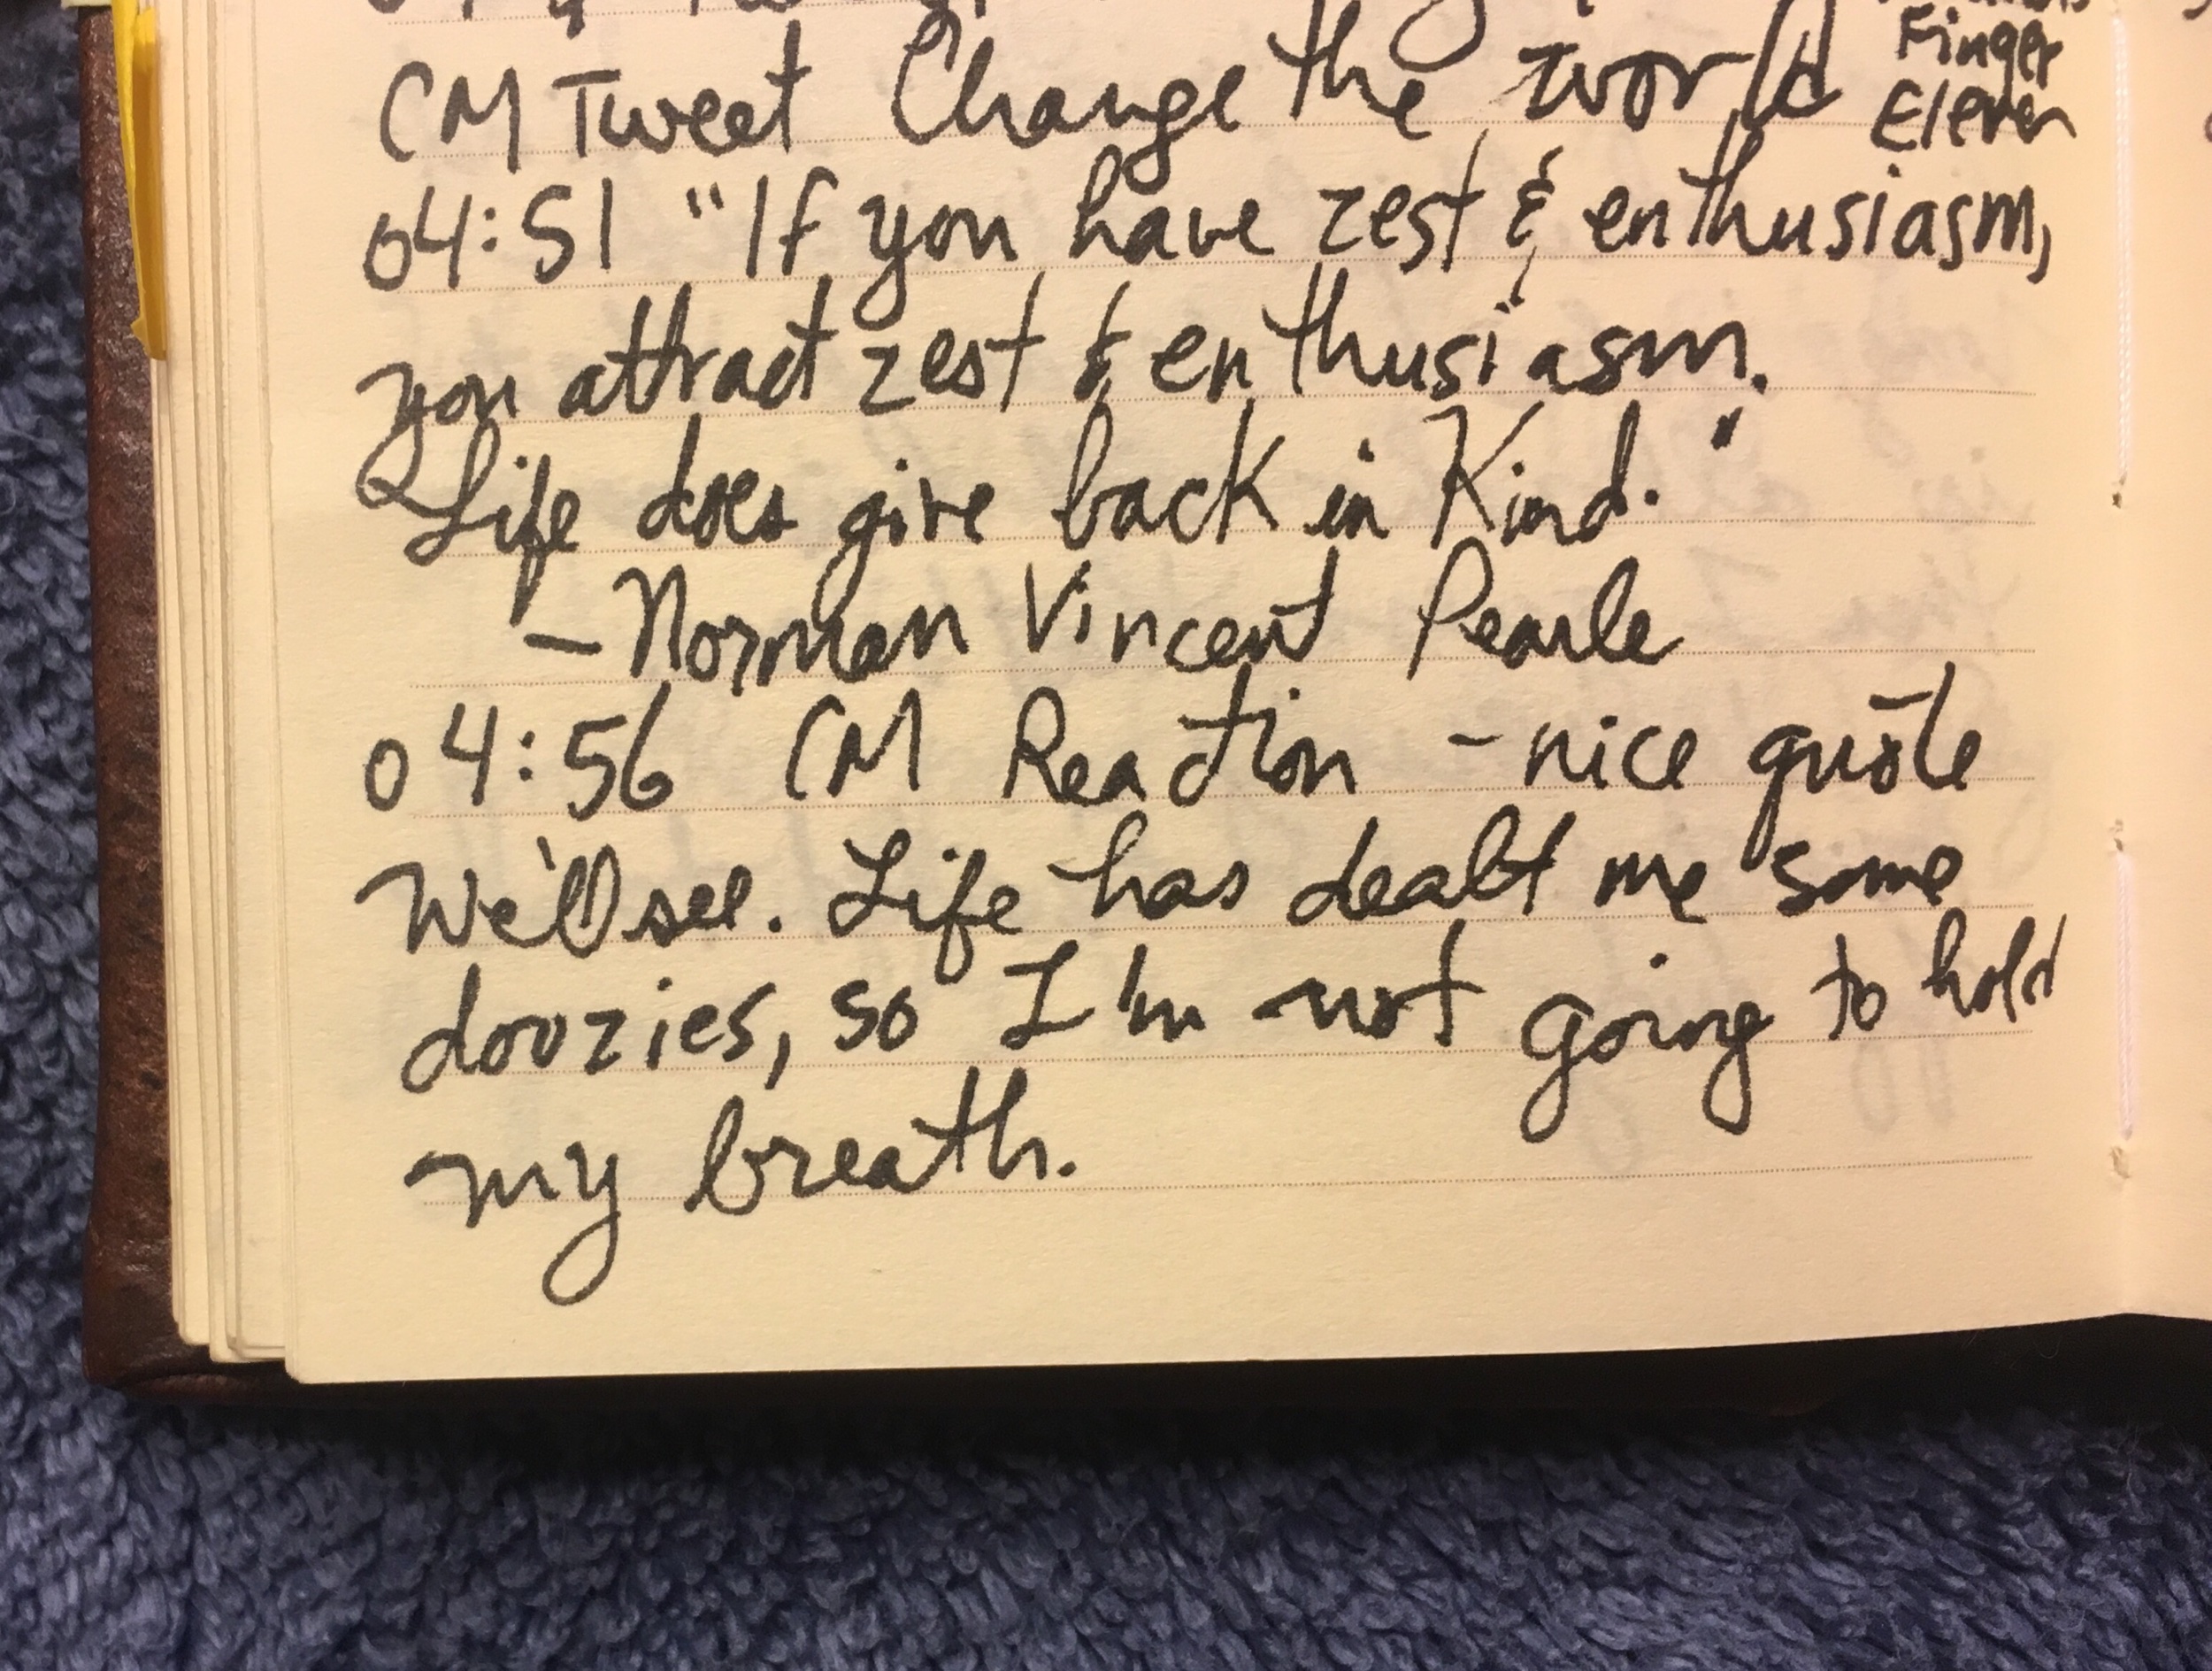 Finger
CM Tweet Change the world Eleven
04:51 "If you have zest & enthusiasm,
you attract zest & enthusiasm.
Life does give back in Kind."
- Norman Vincent Pearle
04:56 CM Reaction - nice quote
We'll see. Life has dealt me some
doozies, so I'm not going to hold
my breath.